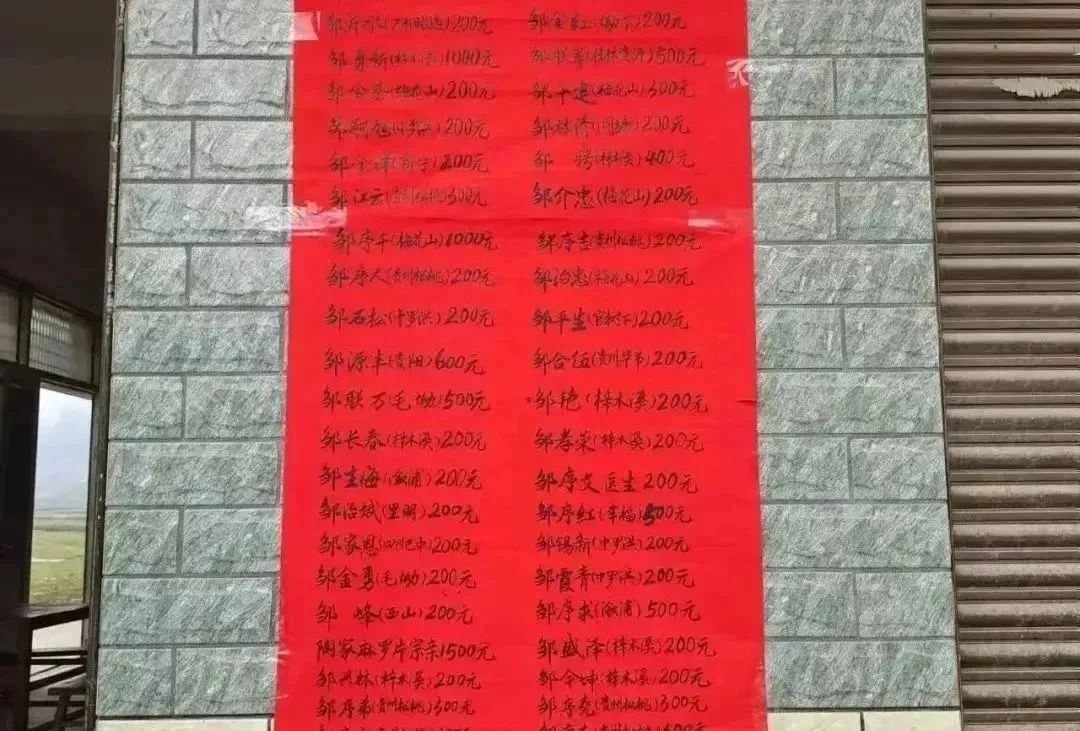 邹 200元 邹金红(坳下)200元
邹 1000元 邹联 500元
邹 (梅花山)200元 邹 (梅花山)300元
邹 200元 邹林清 200元
邹 200元 邹 400元
邹江云(贵州松桃)300元 邹介忠(梅花山)200元
邹序千(梅花山)1000元 邹序志(贵州松桃)200元
邹序人(贵州松桃)200元 邹治忠(梅花山)200元
邹石松(中罗洪)200元 邹平生(官树下)200元
邹源丰(贵阳)600元 邹合伍(贵州毕节)200元
邹联万(毛坳)500元 邹艳(梓木溪)200元
邹长春(梓木溪)200元 邹孝荣(梓木溪)200元
邹生海(溆浦)200元 邹序文医生200元
邹治斌(里明)200元 邹序红(幸福)500元
邹家恩(四川巴中)200元 邹锡新(中罗洪)200元
邹金勇(毛坳)200元 邹霞青(中罗洪)200元
邹 峰(西山)200元 邹序求(溆浦)500元
陶家麻罗片宗亲1500元 邹盛泽(梓木溪)200元
邹兴林(梓木溪)200元 邹全坤(梓木溪)200元
邹序弟(贵州松桃)300元 邹序尧(贵州松桃)300元